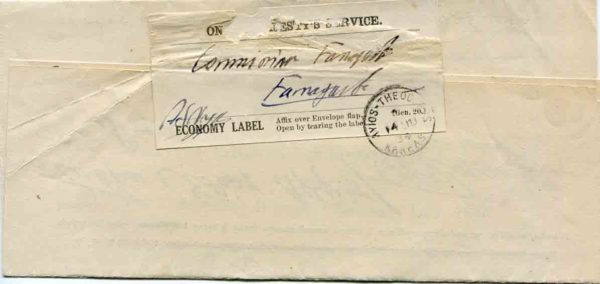 ON ESTY'S SERVICE.
Commissioner Famagusta
Famagusta
ECONOMY LABEL
Affix over Envelope flap
Open by tearing the label
(Gen. 20.)
AYIOS-THEODO
KARPAS